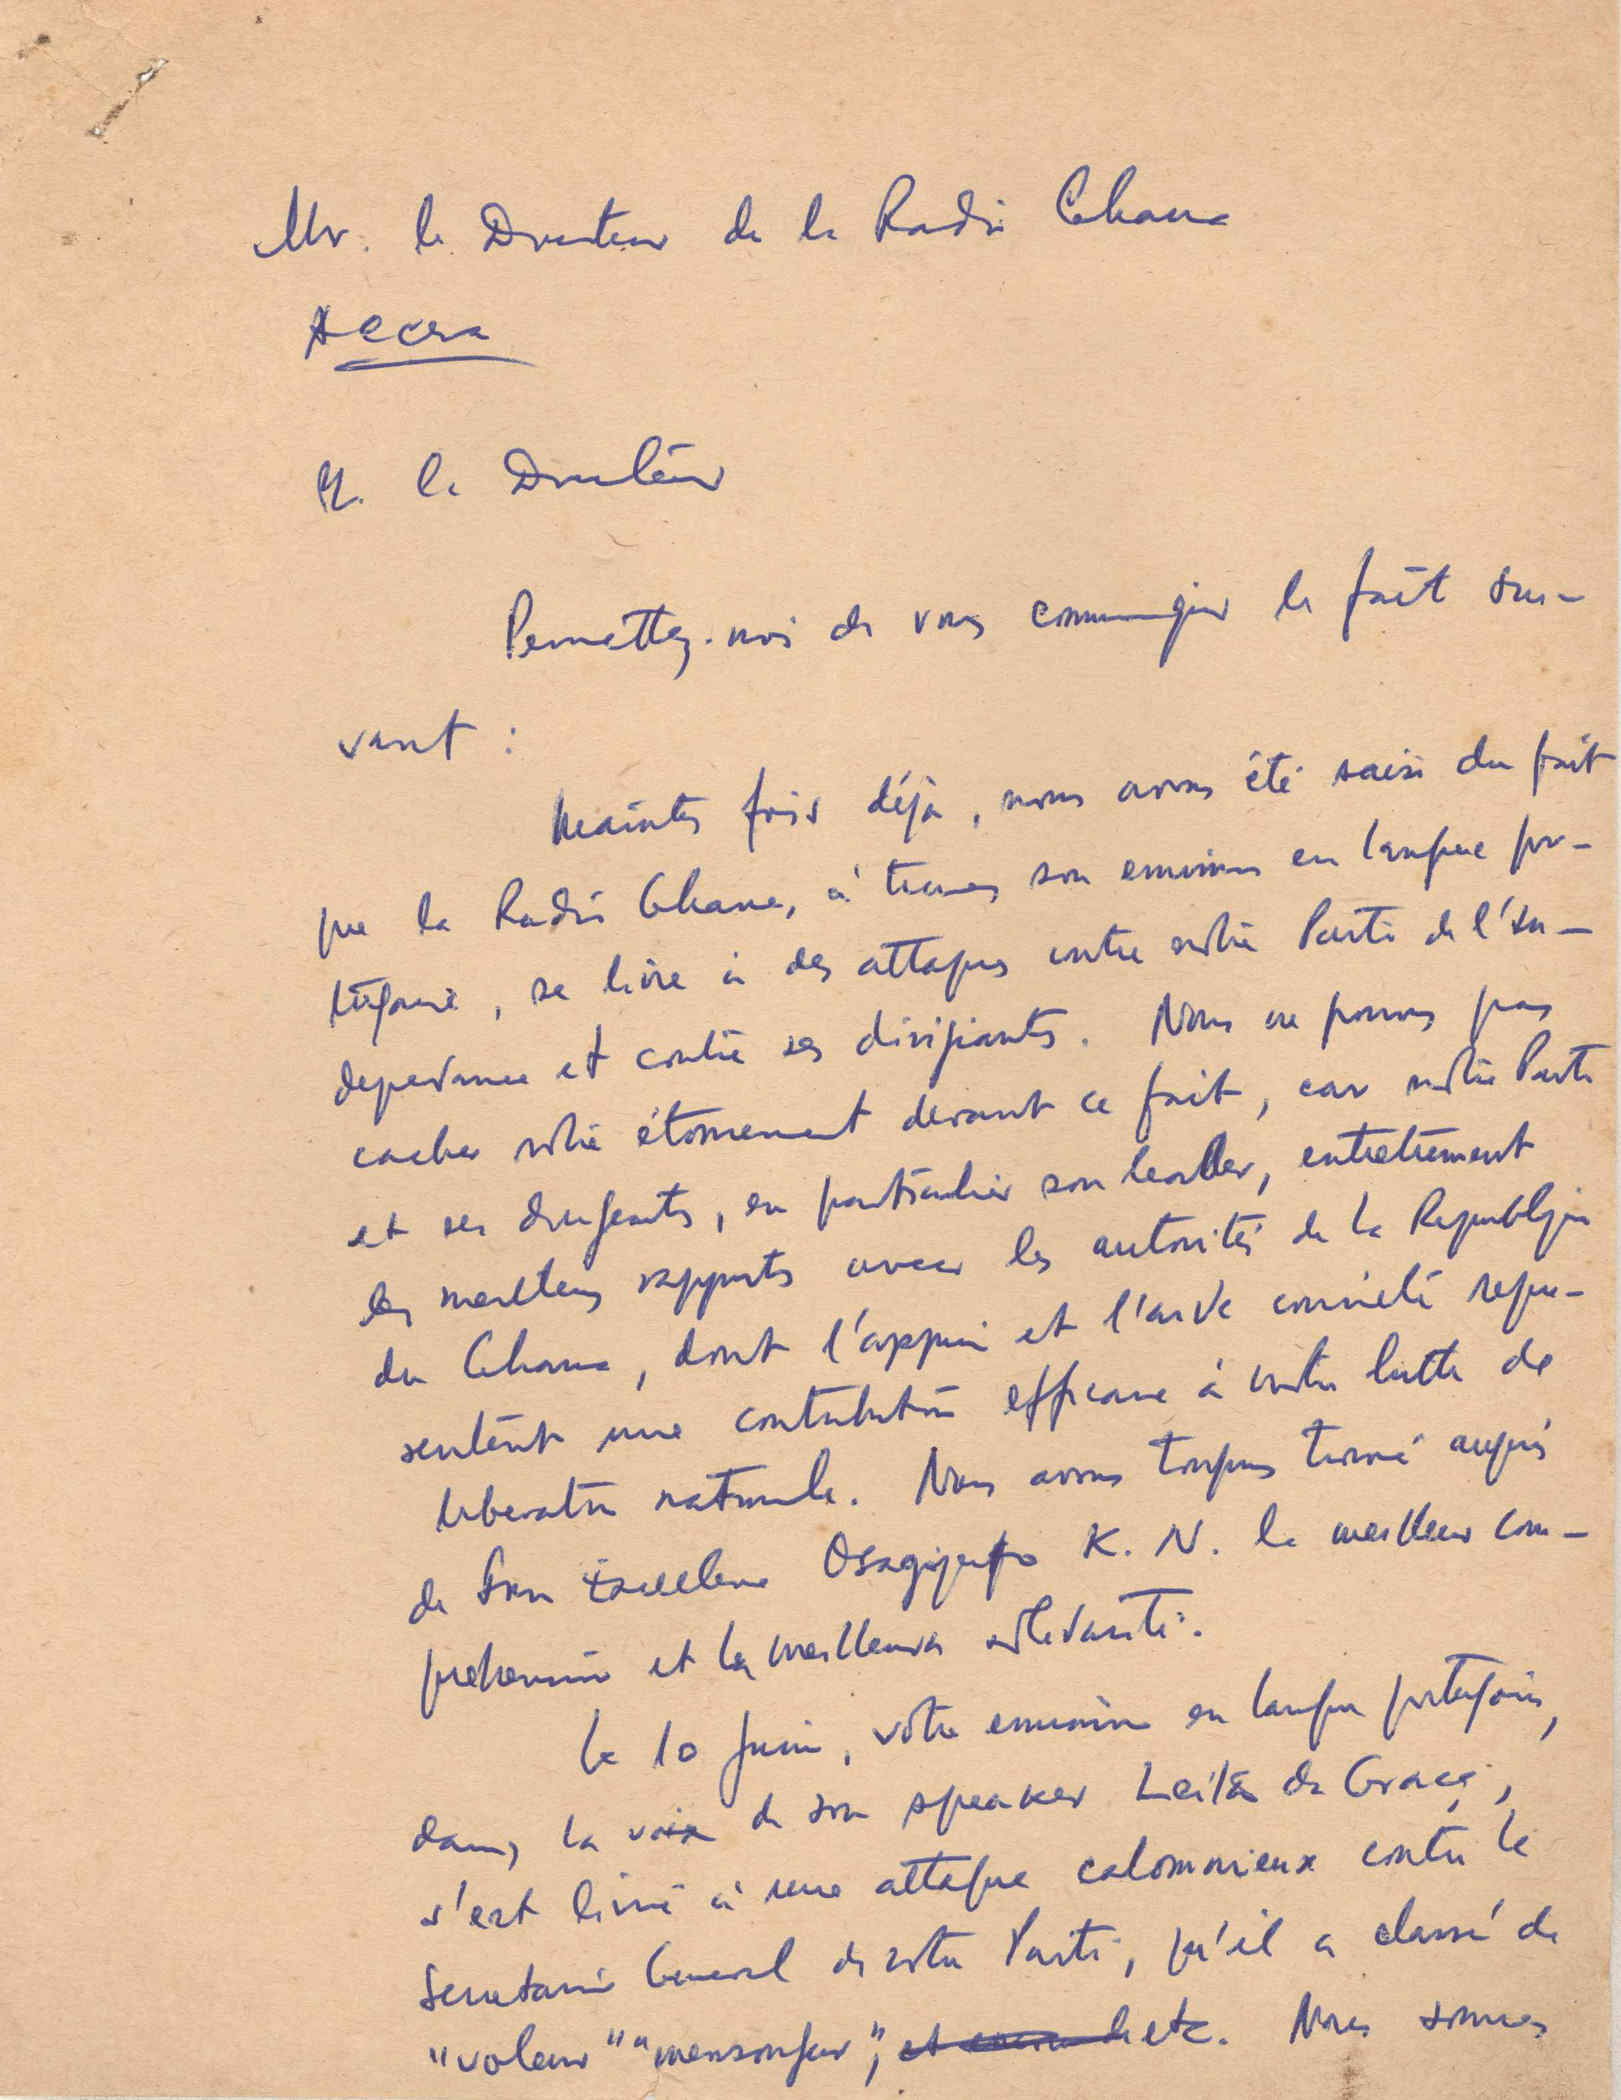 Mr. le Directeur de la Radio Ghana
Accra
M. le Directeur
Permettez-moi de vous communiquer le fait sui-
vant :
Maintes fois déjà, nous avons été saisi du fait
que la Radio Ghana, à travers son emission en langue por-
tugaise, se livre à des attaques contre notre Parti de l'In-
dependance et contre ses dirigeants. Nous ne pouvons pas
cacher notre étonnement devant ce fait, car notre Parti
et ses dirigeants, en particulier son leader, entretiennent
les meilleurs rapports avec les autorités de la Republique
du Ghana, dont l'appui et l'aide concrète repre-
sentent une contribution efficace à notre lutte de
liberation nationale. Nous avons toujours trouvé auprès
de Son Excellence Osagyefo K. N. la meilleur com-
prehension et la meilleure solidarité.
Le 10 Juin, votre emission en langue portugaise,
dans la voix de son speaker Leitão da Graça,
s'est livré à une attaque calomnieux contre le
Secretaire General de notre Parti, qu'il a classé de
"voleur" "mensongeur", etc. Nous sommes